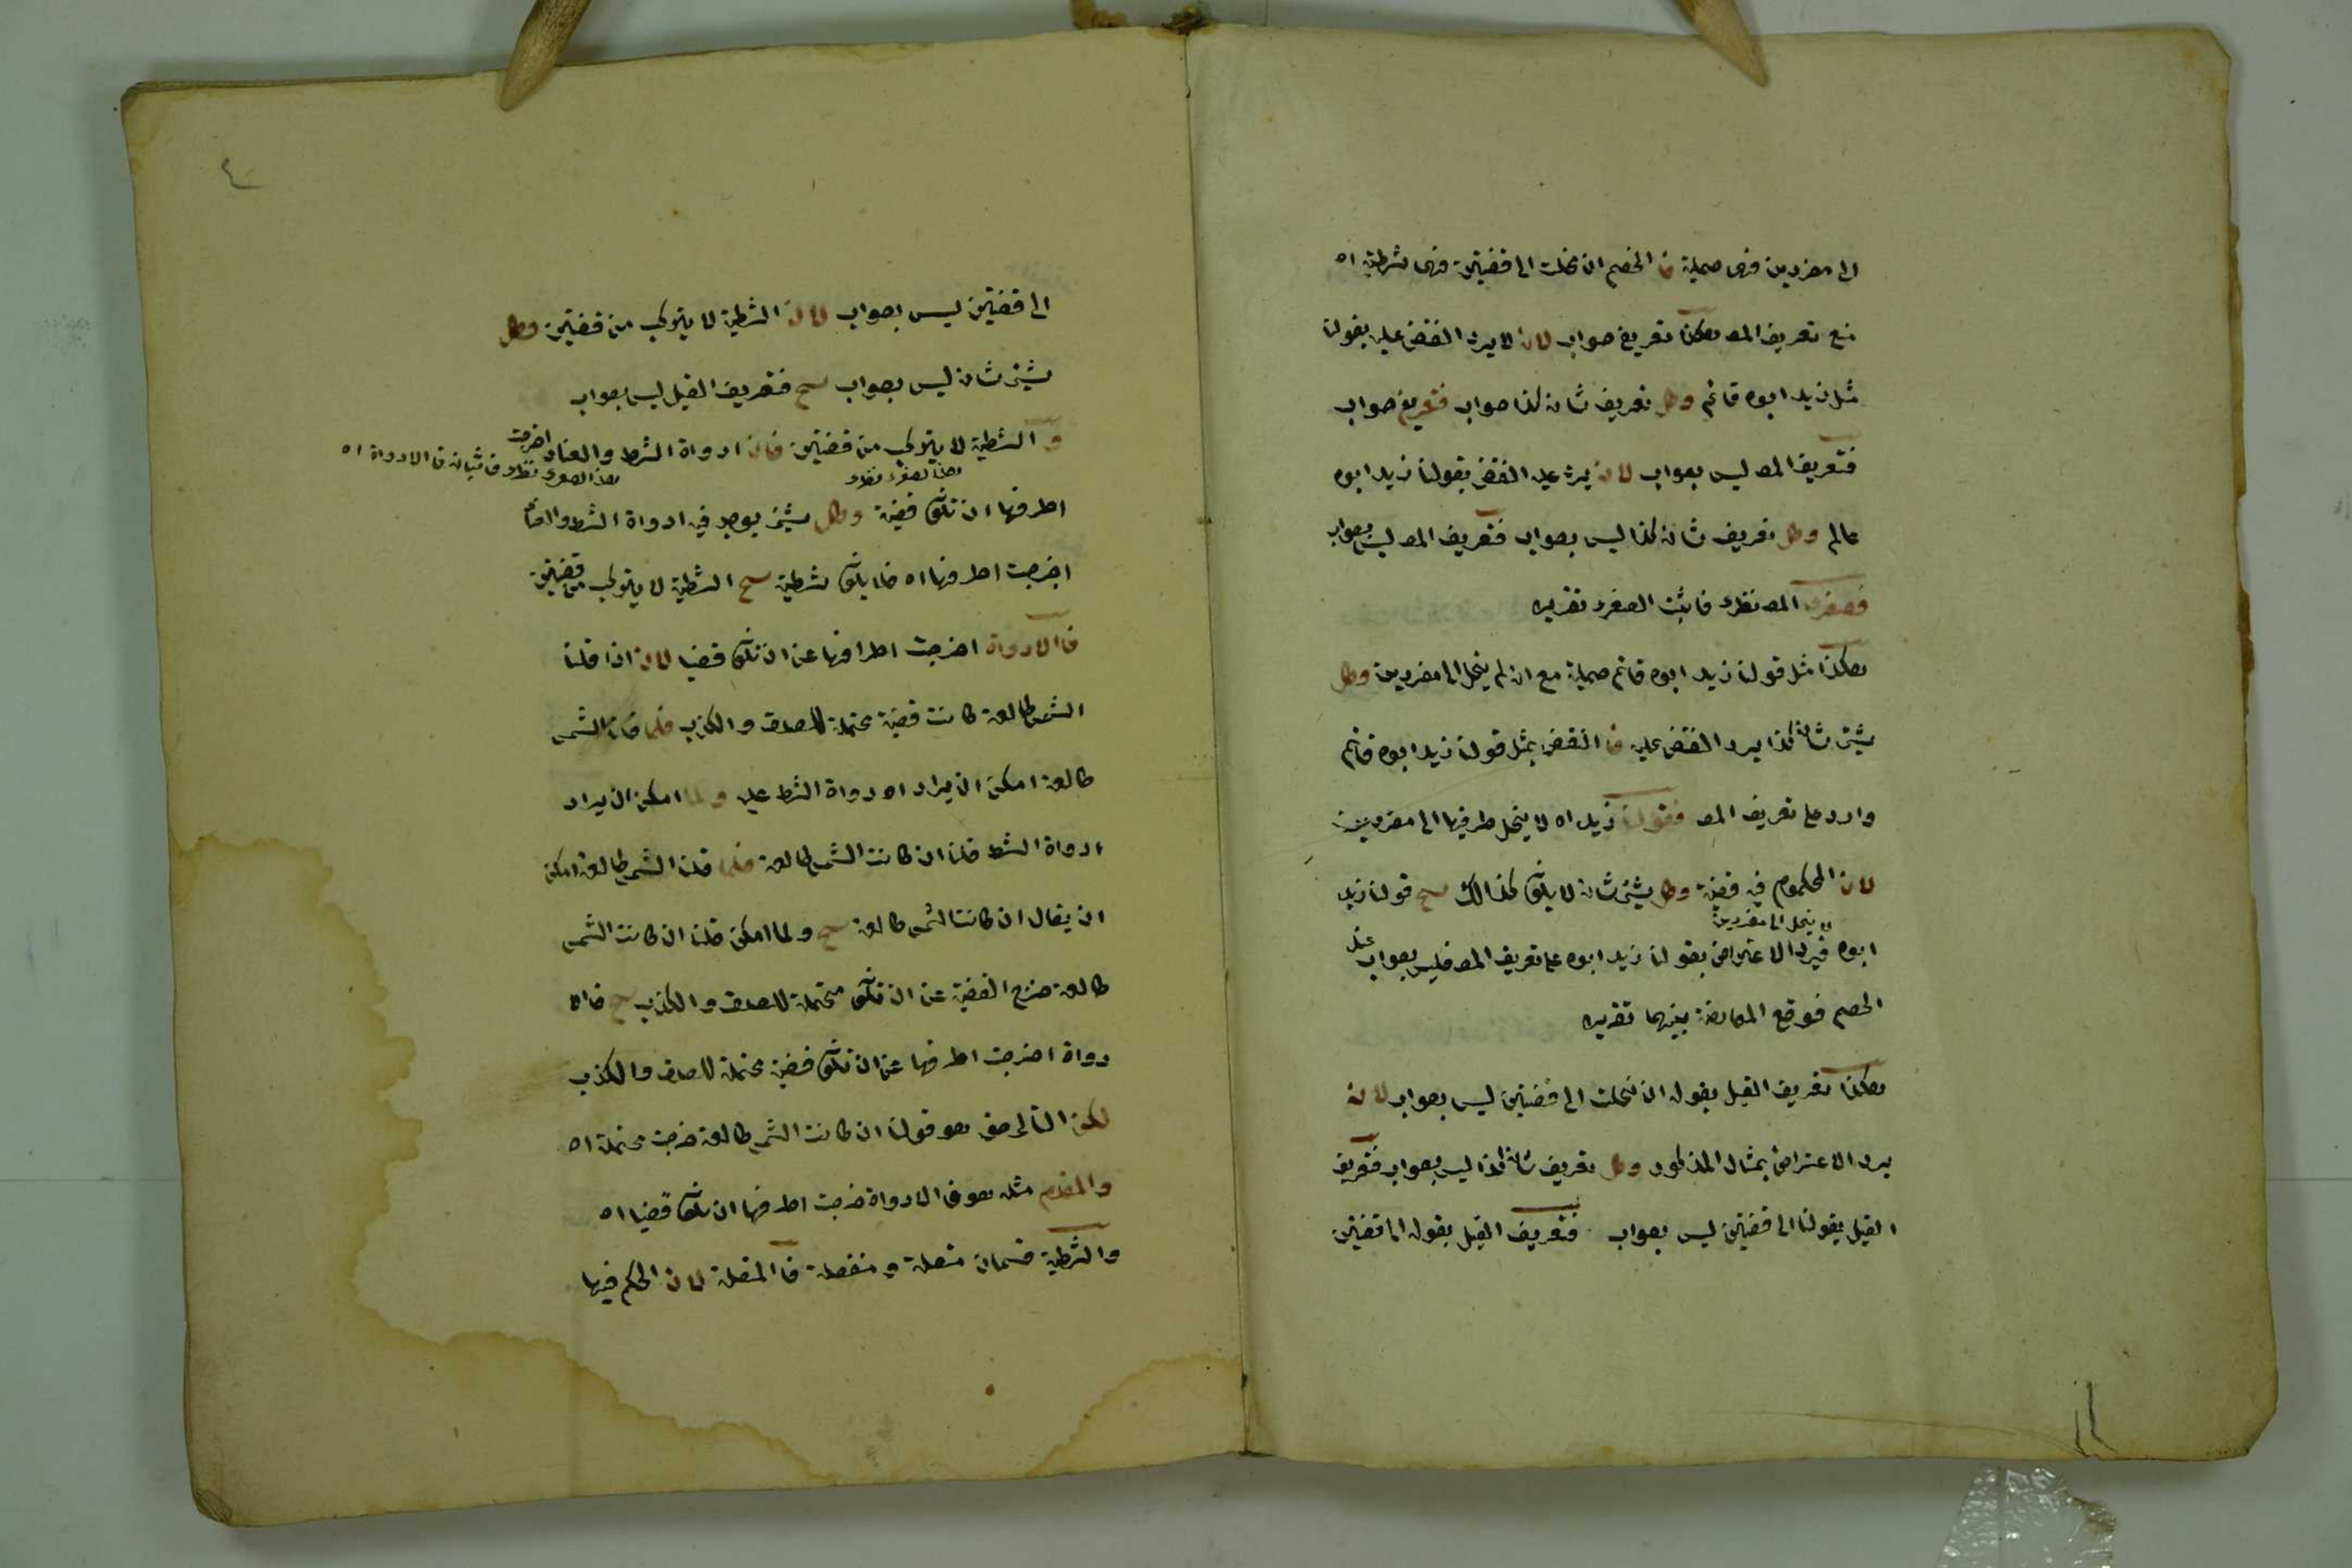 الى مفردين فهى حملية فا الخصم ان نحلت الى قضيتين فهى شرطية اه
منع تعريف المصـ هكذا تعريفه صواب لانه لا يرد النقض عليه بقولنا
مثل زيد ابوه قائم وكل تعريف شانه كذا صواب فتعريفه صواب
فتعريف المصـ ليس بصواب لانه يرد عليه النقض بقولنا زيد ابوه
عالم وكل تعريف شانه كذا ليس بصواب فتعريف المصـ ليس بصواب
فصغرى المصـ نظرى فاثبت الصغرى تقريره
هكذا مثل قولنا زيد ابوه قائم حملية مع انه لم ينحل الى مفردين وكل
شيئ شانه كذا يرد النقض عليه فا النقض بمثل قولنا زيد ابوه قائم
وارد على تعريف المصـ فقولنا زيد اه لا ينحل طرفيها الى مفردين
لان المحكوم فيه قضية وكل شيئ شانه لا يكون كذالك سح قولنا زيد
لا ينحل الى مفردين
ابوه فيرد الاعتراض بقولنا زيد ابوه على تعريف المصـ فليس بصواب عند
الخصم فوقع المعارضة بينهما تقريره
هكذا تعريف القيل بقوله ان نحلت الى قضيتين ليس بصواب لانه
يرد الاعتراض بمثال المذكور وكل تعريف شانه كذا ليس بصواب فتعريف
القيل بقولنا الى قضيتين ليس بصواب فتعريف القيل بقوله الى قضيتين
٤
الى قضيتين ليس بصواب لان الشرطية لا يتركب من قضيتين وكل
شيئ شانه ليس بصواب سح فتعريف القيل ليس بصواب
والشرطية لا يتركب من قضيتين فان ادواة الشرط والعناد اخرجت
هذا الصغرى نظرى هذا الصغرى نظرى فا الادواة اه
اطرفها ان تكون قضية وكل شيئ يوجد فيه ادواة الشرط والعناد
اخرجت اطرفها اه فلا يكون شرطية سح الشرطية لا يتركب من قضيتين
فا الادواة اخرجت اطرافها عن ان تكون قضيا لان اذا قلنا
الشمس طالعة كانت قضية محتملة للصدق والكذب فلما قلنا الشمس
طالعة امكن ان يراد ادواة الشرط عليه ولما امكن ان يراد
ادواة الشرط قلنا ان كانت الشمس طالعة فلما قلنا الشمس طالعة امكن
ان يقال ان كانت الشمس طالعة سح ولما امكن قلنا ان كانت الشمس
طالعة خرج القضية عن ان تكون محتملة للصدق والكذب سح فالا
دواة اخرجت اطرفها عن ان تكون قضية محتملة للصدق والكذب
لكن التالى حق هو قولنا ان كانت الشمس طالعة خرجت محتملة اه
والمقدم مثله هو فا الادواة خرجت اطرفها ان تكون قضيا اه
والشرطية قسمان متصلة ومنفصلة فا المتصلة لان الحكم فيها